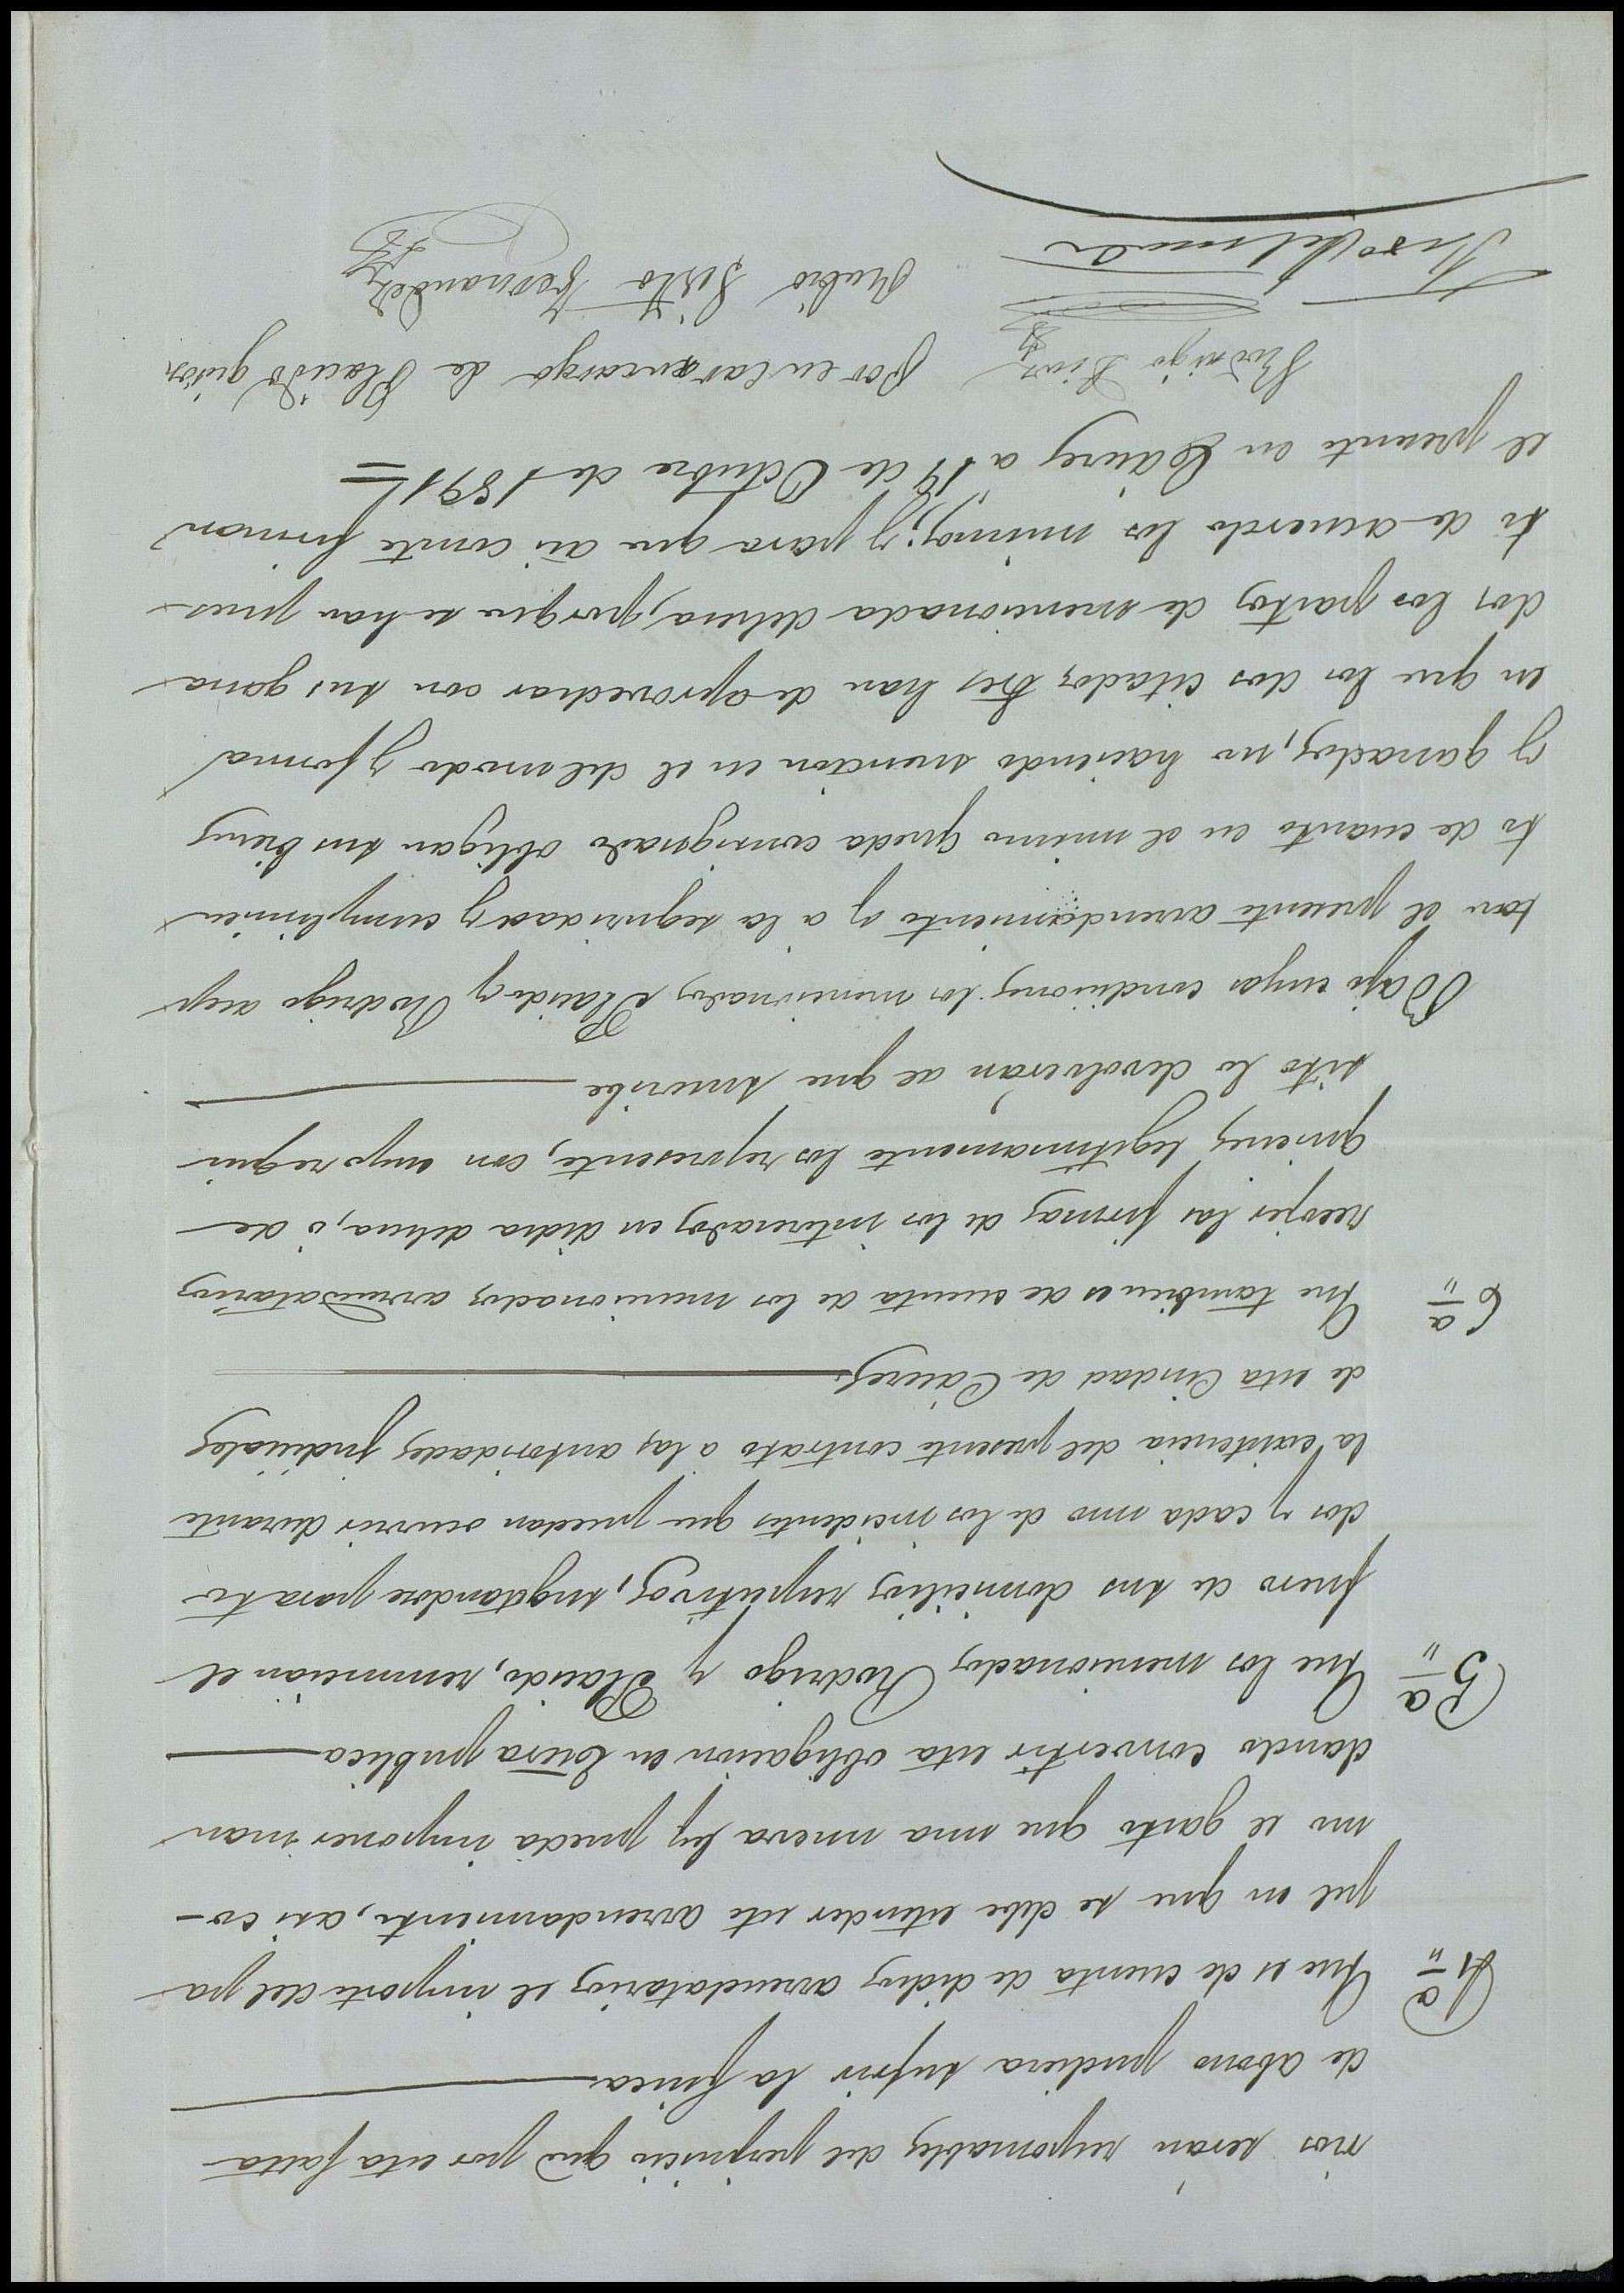 rios serán responsables del perjuicio que por esta falta
de abono pudiera sufrir la finca
4ª Que es de cuenta de dichos arrendatarios el importe del pa
pel en que se debe estender este arrendamiento, asi co-
mo el gasto que una nueva ley pueda imponer man
dando convertir esta obligacion en Escra publica
5ª Que los mencionados Rodrigo y Placido, renuncian el
fuero de sus domicilios respectivos, sugetandose para to
dos y cada uno de los incidentes que puedan ocurrir durante
la existencia del presente contrato a las autoridades judiciales
de esta Ciudad de Cáceres
6ª Que tambien es de cuenta de los mencionados arrendatarios
recojer las firmas de los interesados en dicha dehesa, ó de
quienes legitimamente los represente, con cuyo requi
sito lo devolverán al que suscribe
Bajo cuyas condiciones los mencionados Placido y Rodrigo acep
tan el presente arrendamiento y a la seguridad y cumplimien
to de cuanto en el mismo queda consignado obligan sus bienes
y ganados, no haciendo mencion en el del modo y forma
en que los dos citados Sres han de aprovechar con sus gana
dos los pastos de mencionada dehesa, porque se han pues
to de acuerdo los mismos; y para que asi conste firman
el presente en Cáceres a 19 de Octubre de 1891
Rodrigo por encargo de Placido
Rubio Sixto Fernandez